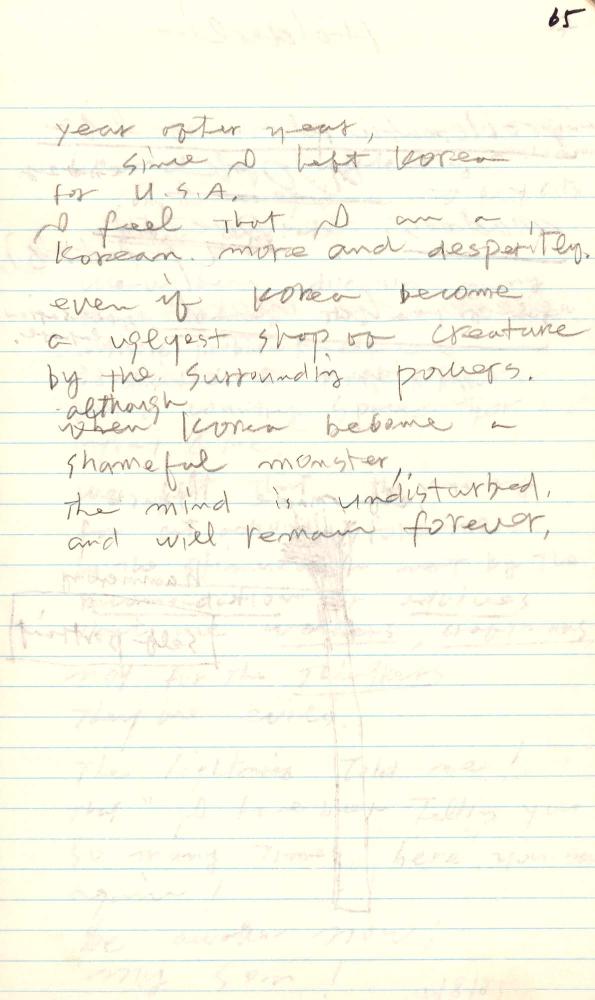 65
year after year,
since I left Korea
for U.S.A.
I feel that I am a
Korean. more and desperitly.
even if Korea become
a uglyest shop of creature
by the surrounding powers.
although
when Korea become a
shameful monster,
the mind is undisturbed,
and will remain forever,